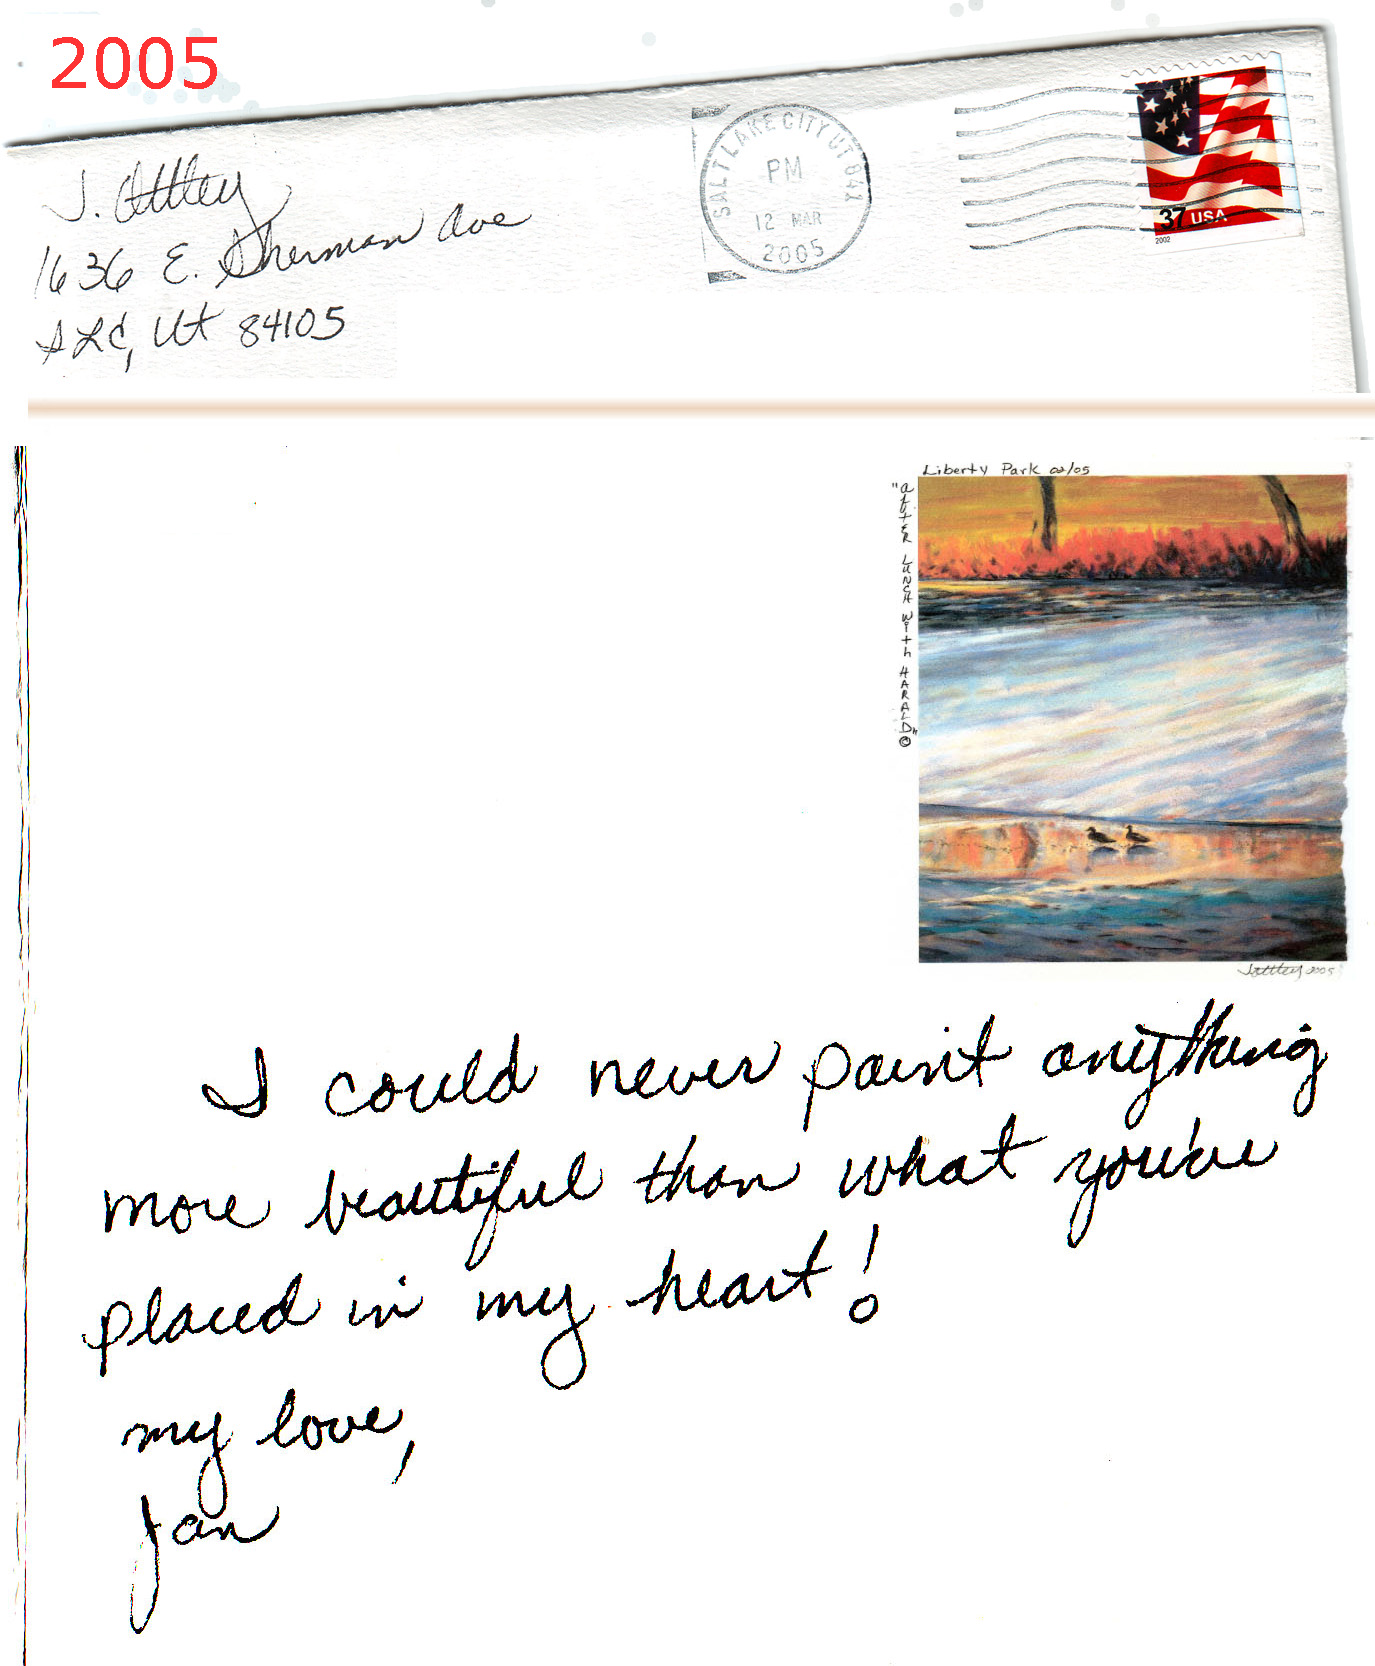 2005
J. Ottley
1636 E. Sherman Ave
SLC, Ut 84105
SALT LAKE CITY UT 841
PM
12 MAR
2005
37 USA
2002
Liberty Park 02/05
"AFTER LUNCH With HARALD" ©
JOttley 2005
I could never paint anything
more beautiful than what you've
placed in my heart!
my love,
Jan